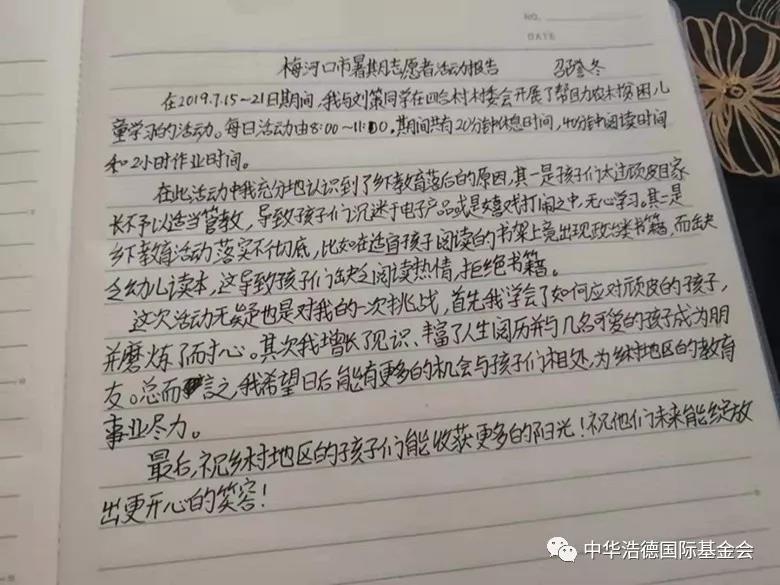 NO.
DATE
梅河口市暑期志愿者活动报告 邵登冬
在2019.7.15~21日期间,我与刘策同学在四合村村委会开展了帮助农村贫困儿
童学习的活动。每日活动由8:00~11:00。期间共有20分钟休息时间,40分钟阅读时间
和2小时作业时间。
在此活动中我充分地认识到了乡下教育落后的原因,其一是孩子们太过顽皮且家
长不予以适当管教,导致孩子们沉迷于电子产品或是嬉戏打闹之中,无心学习。其二是
乡下教育活动落实不彻底,比如在适合孩子阅读的书架上竟出现政治类书籍,而缺
乏幼儿读本,这导致孩子们缺乏阅读热情,拒绝书籍。
这次活动无疑也是对我的一次挑战,首先我学会了如何应对顽皮的孩子,
并磨炼了耐心。其次我增长了见识、丰富了人生阅历并与几名可爱的孩子成为朋
友。总而言之,我希望日后能有更多的机会与孩子们相处,为乡村地区的教育
事业尽力。
最后,祝乡村地区的孩子们能收获更多的阳光!祝他们未来能绽放
出更开心的笑容!
中华浩德国际基金会